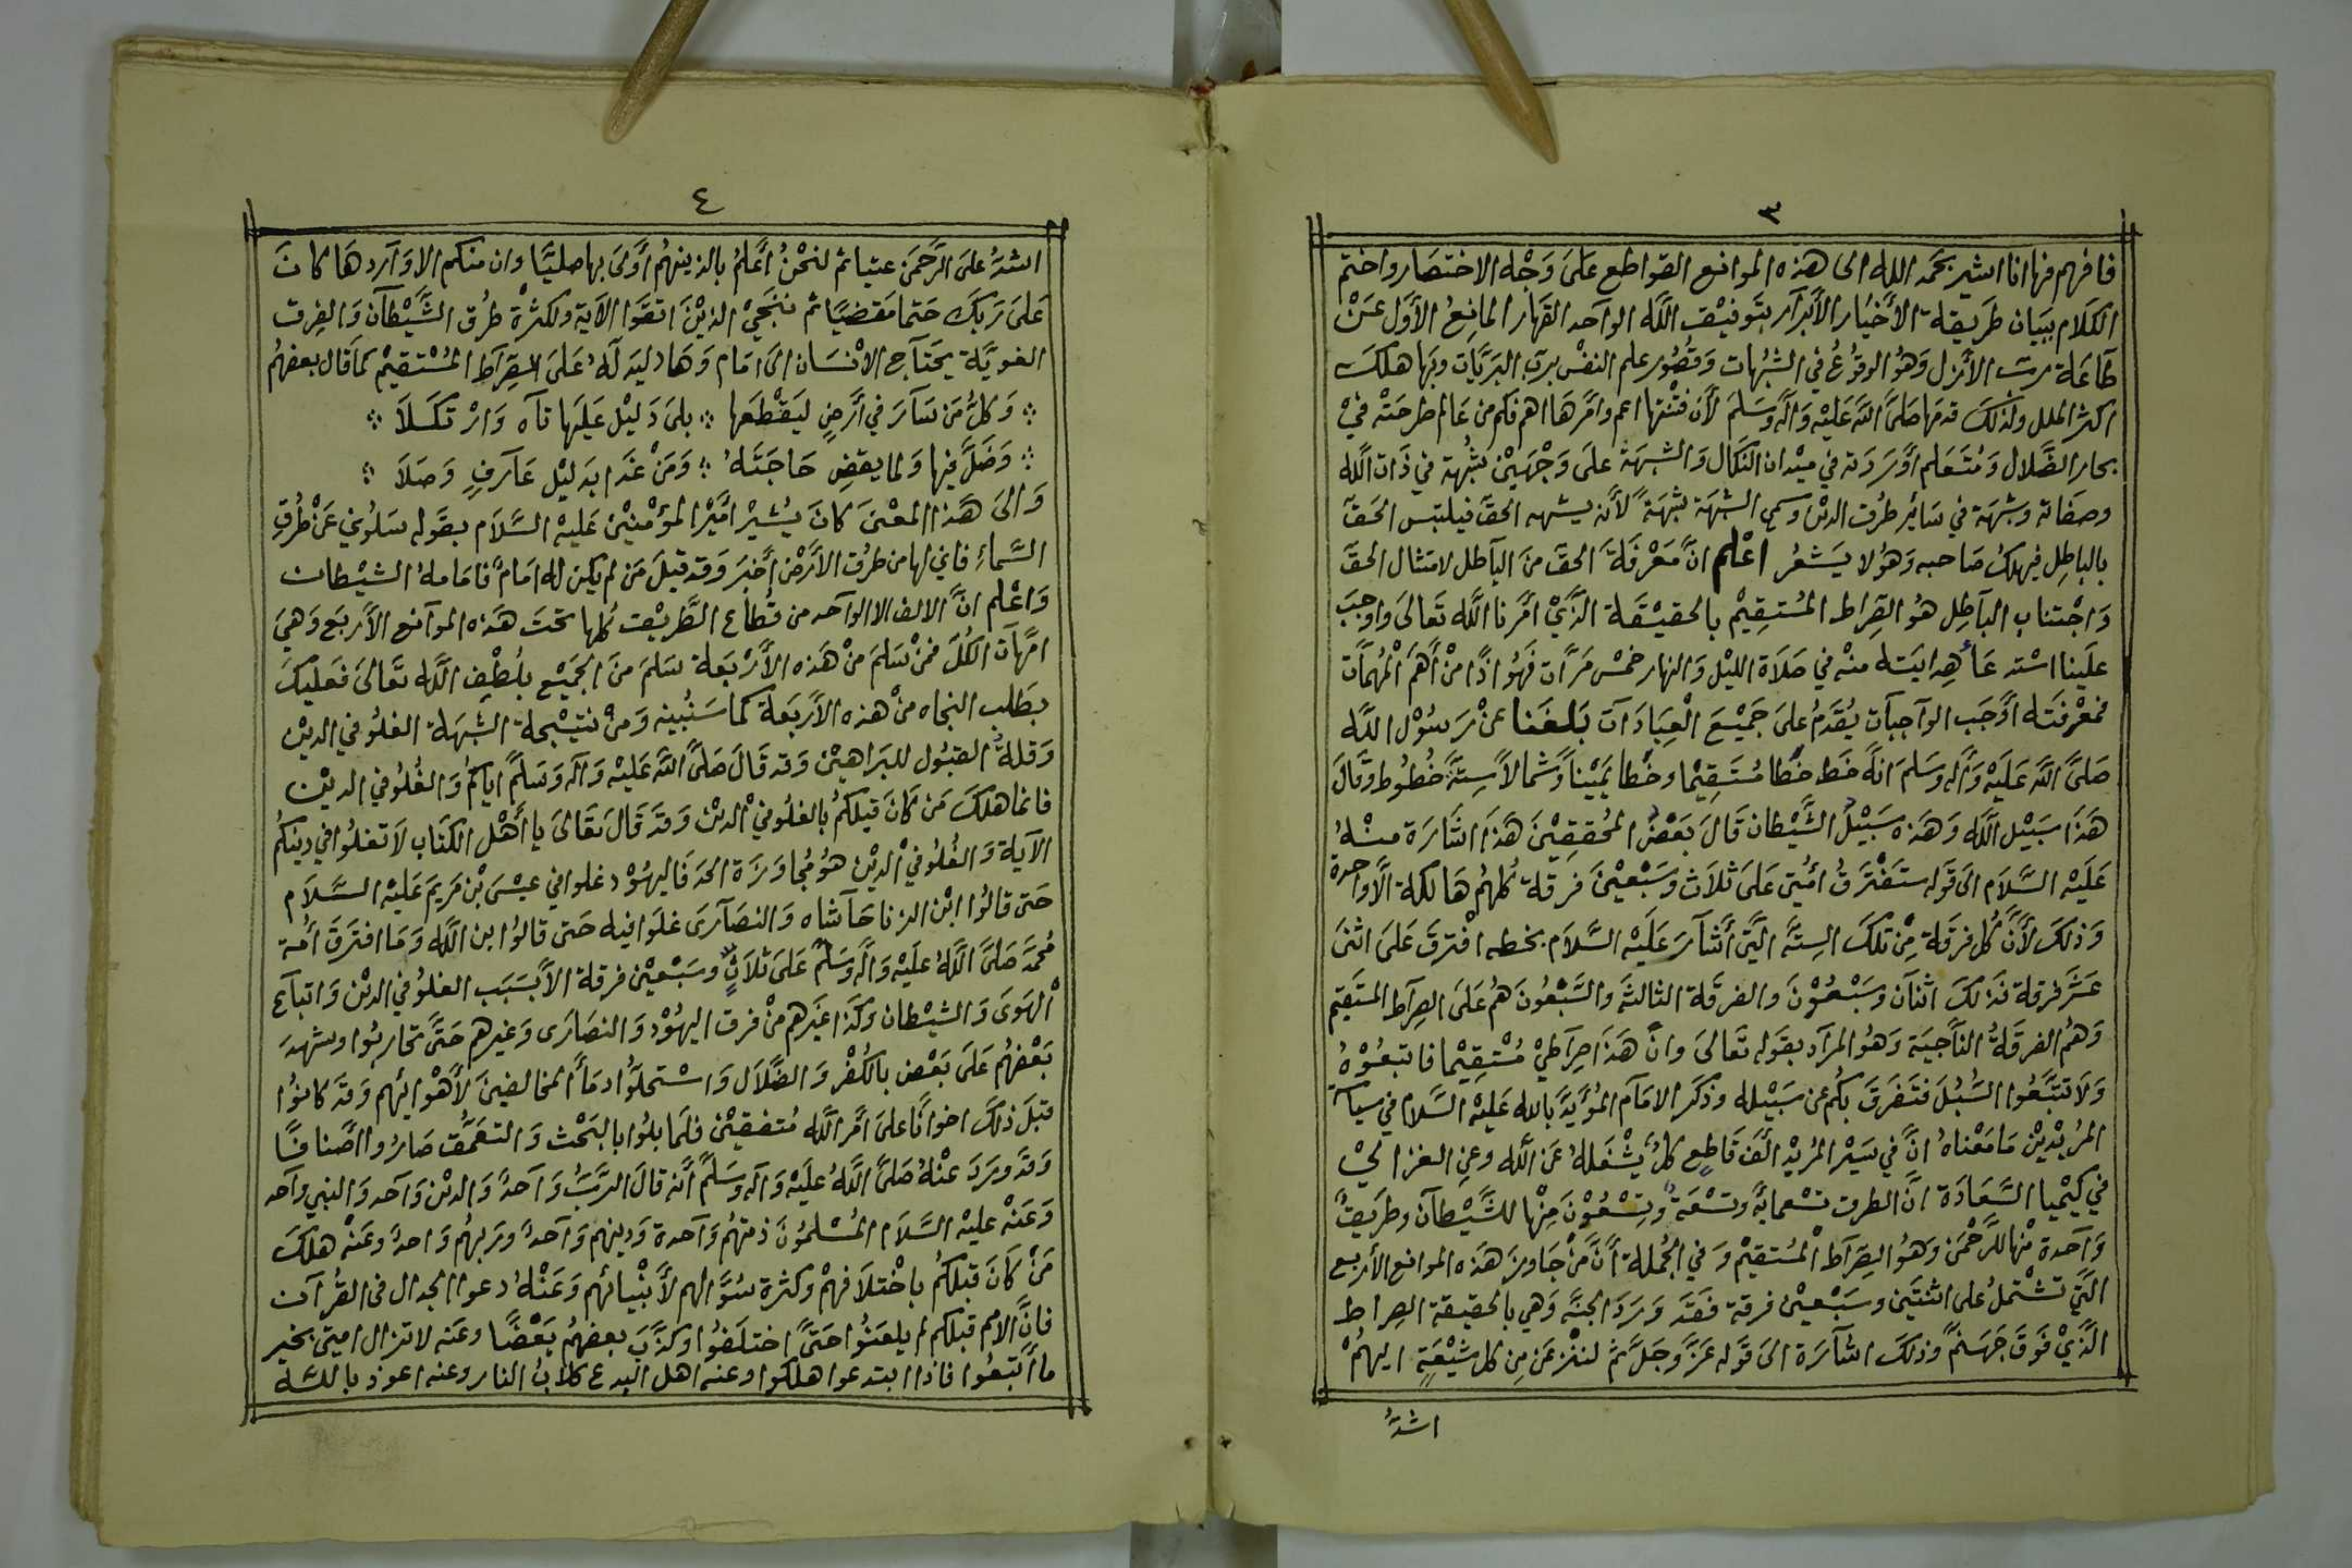 ٣
فافهم فها انا اشير بحمد الله الى هذه الموانع القواطع عَلىَ وَجْه الاختصار واختم
الكلام ببيَان طَريقة الأخيَار الأبرَار بتَوفيْق اللَّه الوَاحد القهَار المانِعُ الأوّل عَنْ
طَاعَة ربّ الأزل وَهُو الوقوُعُ في الشبُهات وَقصُور علم النفْس بربّ البَريَّات وبهَا هلك
اكثر الملل ولذلكَ قدمهَا صَلىَ اللَّه عَليْه وَاله وَسَلمَ لأن فتْنتها اعم وامْرهَا اهم فكم من عَالم طرحتْه فيْ
بحار الضَّلال وَمُتَعَلم أوْرَدَته في ميْدان النكال وَالشبهَة عَلىَ وَجْهَيْن شبُهة في ذَات اللَّه
وصفَاته وشبْهَة في سَائِر طرُق الديْن وسمي الشبْهَة شبْهَةً لأنه يشبه الحق فيلتبس الحَقّ
بالباطِل فيهلكُ صَاحبه وَهُوَ لا يَشعُرُ اعْلم انّ مَعْرفَة الحقّ منَ البَاطل لامتثال الحقّ
وَاجْتناب البَاطِل هوُ الصِراط المُستِقيْم بالحقيْقَة الَّذيْ امَرنا اللَّه تعَالىَ وَاوجبَ
علَينا اسْتدعَاء هِدايَته منْه في صَلاَة الليْل وَالنهار خمْسَ مَرَّات فَهُوَ اذًا منْ أهَم الْمُهمَّات
فمعْرفتَه أوْجَب الوَاجبَات يُقَدمُ على جَميْعَ الْعِبَادَات بَلغَنا عنْ رَسوُل اللَّه
صَلىَّ اللَّه عَليَه وَاله وَسَلمَ انهُ خَط خطًا مُستَقيْما وخطًا يَميْناً وَشمالاً ستَة خُطوُط وَقالَ
هَذَا سَبيْل اللَّه وَهَذه سَبيْلُ الشَّيْطان قَالَ بَعْضُ المُحققِيْنَ هَذَا اشَارَة منْهُ
عَليْه السَّلاَم الىَ قَوله ستَفْترَقُ امُّتي عَلىَ ثلاَث وسَبْعيْنَ فرقة كُلهُمُ هَالكة الاَّ واحدة
وَذلكَ لأنَّ كُل فرقَة مِنْ تلكَ الستّة الّتي أشارَ عَليْه السَّلاَم بخطه افْترقَ عَلىَ اثنىَ
عَشَر فرقة فذلكَ اثنان وَسَبْعُوْنَ والفرقَة الثالثة وَالسَّبْعُونَ هُم عَلىَ الصِراط المستَقيم
وَهُم الفرقَةُ النَّاجيَة وَهُو المرَاد بقوله تعَالىَ وانّ هَذا صِرَاطيْ مُسْتِقيْما فاتبعُوْهُ
وَلاَ تتَّبعُوا السُّبُلَ فَتَفرَقَ بِكُم عن سَبيْله وذكَر الامَام المُؤيَّد بالله عَليْه السَّلام في سياسة
المُريْديْن مَا مَعْناهُ انّ في سَيْر المُريْد ألْفَ قَاطِعٍ كلُ يُشْغلهُ عَن اللَّه وعنِ الغزاليْ
في كيْميا السَّعَادَة انَّ الطرق تسْعمايةً وتسْعَة وتسْعُوْنَ مِنْها للشَّيْطان وطَريقٌ
وَاحدة منْها للرَّحْمَن وَهُو الصِرَاط الْمُستقيْم وَفي الجُملة أنَّ مَنْ جَاوزَ هَذه الموانع الأربع
الَّتي تشْتملُ على اثنتَيَن وسَبْعيْن فرقة فَقدَ وَرَدَ الجَنّة وَهي بالحقيقة الصِراط
الَّذيْ فَوقَ جَهَنمَّ وذلكَ اشَارَة الىَ قوله عَزَّ وَجَلَّ ثمَ لننْزعَن مِن كل شيْعَةٍ ايهُمْ
اشدُّ
٤
اشدُّ علىَ الرَّحْمَن عتيا ثم لنحْنُ أعْلمُ بالذينهُم أوْلىَ بها صليًا وان منكم الا وَاردهَا كانَ
عَلىَ رَبكَ حَتما مَقضيًا ثم ننَجيْ الذيْنَ اتقَوا الآية ولكثرْة طرُق الشَّيْطان وَالفِرق
الغويَّة يحتَاج الانْسَان الىَ امَام وَهَاد ليدلهُ عَلىَ الصِرَاط المُسْتقيْم كما قال بعضهُم
وَكلُ مَن سَارَ في أرْضٍ ليَقطعَها ۞ بلىَ دَليْل عَليَها تاه وَارْتكَلاَ
وَضَلَّ فيها وَلما يقضِ حَاجَتهُ ۞ وَمَنْ غَدَا بدَليْل عَارفٍ وَصَلاَ
وَالىَ هَذا المعْنىَ كانَ يُشيْر امَيْر المؤمْنيْن عَليْه السَّلاَم بقوله سَلوُني عَنْ طُرُقِ
السَّماءِ فاني لها من طرُق الأرَض أخبَر وَقد قيْلَ مَن لم يكن له امَام فامَامهُ الشيْطان
وَاعْلم انَّ الالف الا الواحد من قُطاع الطَّريْق كُلها تحْتَ هَذه الموانع الأرْبَع وَهي
امَّهات الكُلّ فمَنْ سَلمَ منْ هَذه الأرْبَعَة سَلمَ منَ الجَميْع بلُطْفِ اللَّه تعَالىَ فعَليكَ
بطَلب النجاه منْ هذه الأربَعَة كما سَنُبينه وَمنْ نتيْجة الشبْهَة الغلُو في الديْن
وَقلةُ القبُول للبَراهيْن وَقد قالَ صَلىَّ اللَّه عَليْه وَاله وَسَلمَّ اياكمُ وَالغُلُو في الديْن
فانما هلكَ مَن كَانَ قبلكُم بالغلُو فيْ الديْن وَقدَ قَالَ تعَالىَ يا أهْل الكتَاب لاَ تغلُوا في دينكُم
الآية وَالغُلُو فيْ الديْن هوُ مُجاوزَة الحد فَاليهُوْد غلوا في عيْسىَ بْن مَريمَ عَليْه السَّلاَم
حَتى قالُوا ابْن الزنا حَاشاه وَالنصَارَى غلَوا فيه حَتى قالوُا ابن اللَّه وَمَا افترَقَ أمُة
مُحمَّد صَلىَّ اللَّهُ عَليْه وَاله وَسَلمَّ عَلىَ ثلاَثٍ وسَبْعيْن فرقة الاَّ بسَبَب الغلُوُ في الديْن وَاتباع
الْهَوى وَالشيْطان وَكذا غيَرهم منْ فرق اليهُوْد وَالنصَارَى وَغيرهم حَتىَّ تحاربُوا وشهدَ
بَعْضهُم عَلىَ بَعْض بالكُفْر وَالضَّلاَل وَاسْتحلُّوا دمَاءَ المخالفينَ لأهْوائِهم وَقدَ كانوُا
قبلَ ذلكَ اخوانًا علىَ امْر اللَّه مُتفقيْن فلَما بلوُا بالبَحْث وَالتعَمُّق صَارُوا اصْنافًا
وَقدَ ورَدَ عنْهُ صَلىَّ اللَّهُ عَليْه وَآله وسَلمَّ أنه قالَ الرَّبُّ وَاحدٌ وَالديْن وَاحد وَالنبي واحد
وَعَنْه عليْه السَّلاَم المُسْلموُنَ ذمتهُم وَاحدة وَدينهم وَاحدٌ ورَبهُم وَاحدٌ وعَنْه هلكَ
مَنْ كَانَ قبلكُم باخْتلاَفهمْ وكثرة سُؤَالهم لأنْبيائهم وَعَنْهُ دعوا الجدال في القُرآن
فانَّ الامم قبلكم لم يلعَنوُا حَتىَّ اختلَفوُا وكذَّبَ بعضهُم بَعْضًا وعَنه لا تزال امتي بخير
ما اتبَّعُوا فاذا ابتدعوا هلكوا وعنه اهل البدع كلابُ النار وعنه اعوذ بالله